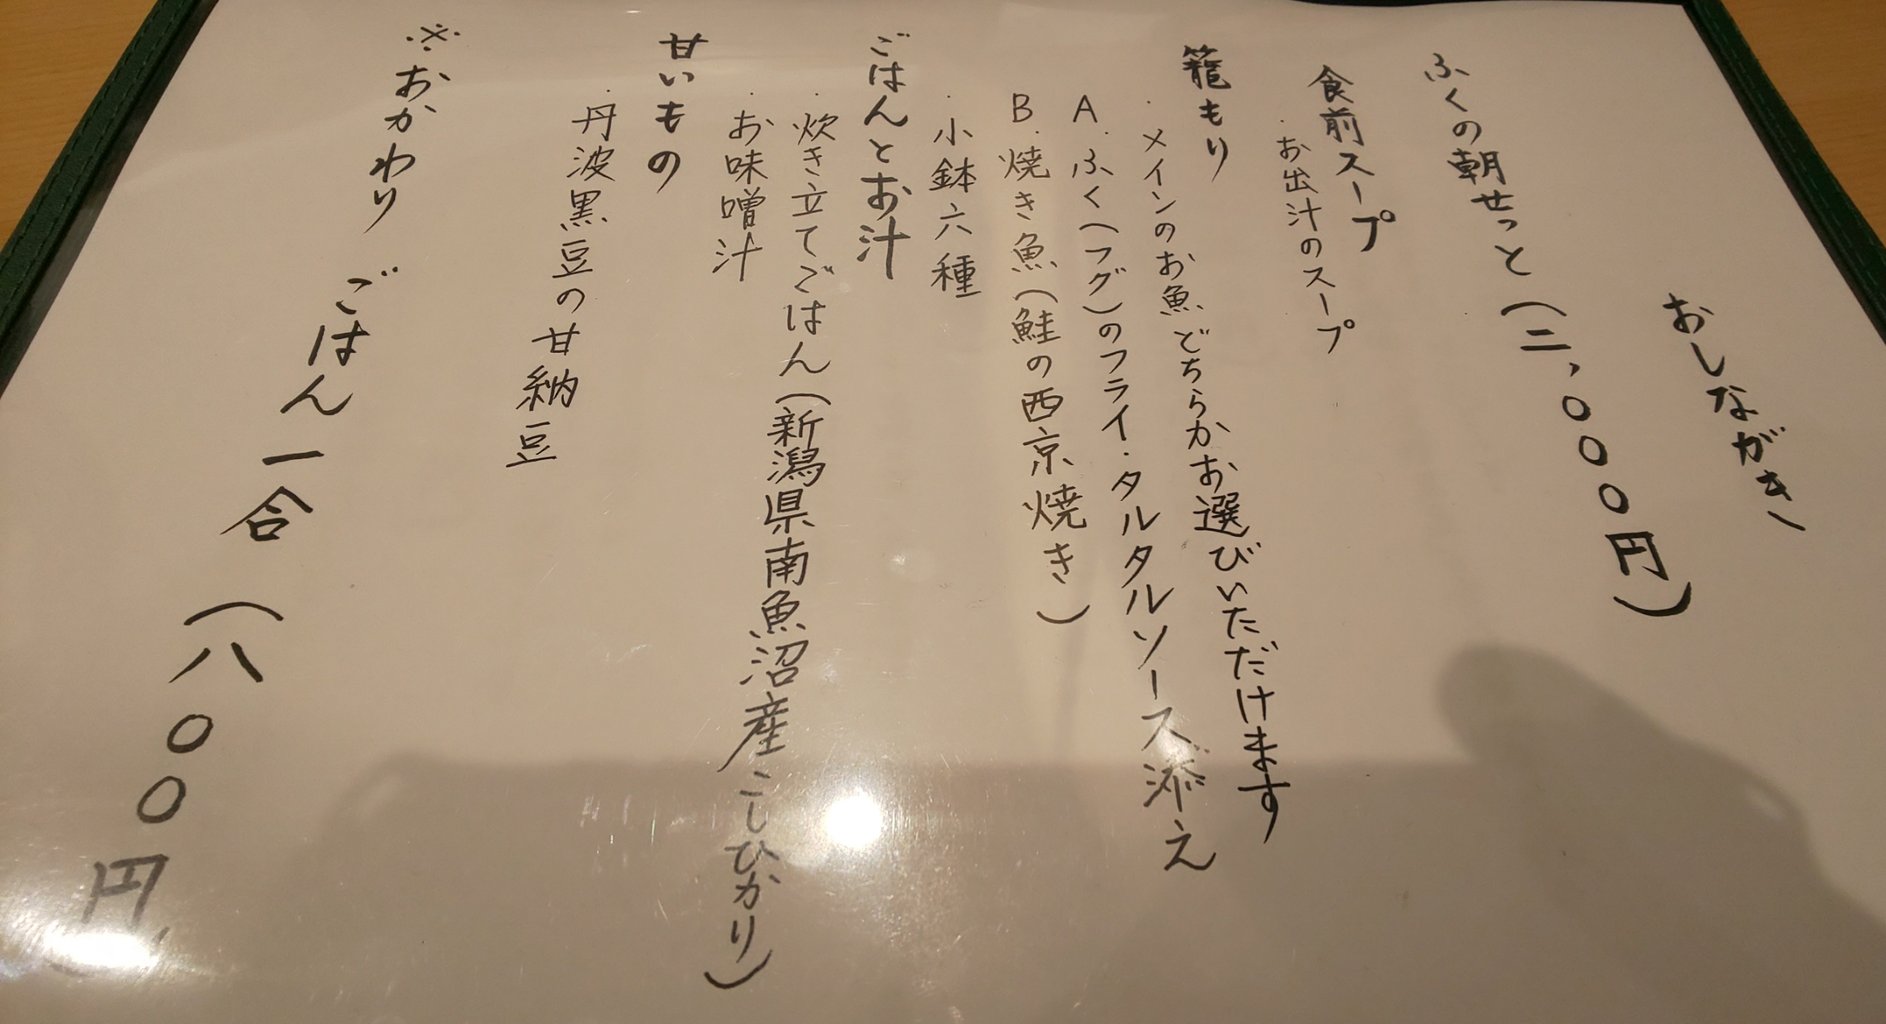 おしながき
ふくの朝せっと（二、〇〇〇円）
食前スープ
・お出汁のスープ
籠もり
・メインのお魚どちらかお選びいただけます
A．ふく（フグ）のフライ・タルタルソース添え
B．焼き魚（鮭の西京焼き）
・小鉢六種
ごはんとお汁
・炊き立てごはん（新潟県南魚沼産こしひかり）
・お味噌汁
甘いもの
・丹波黒豆の甘納豆
※おかわり　ごはん一合（八〇〇円）